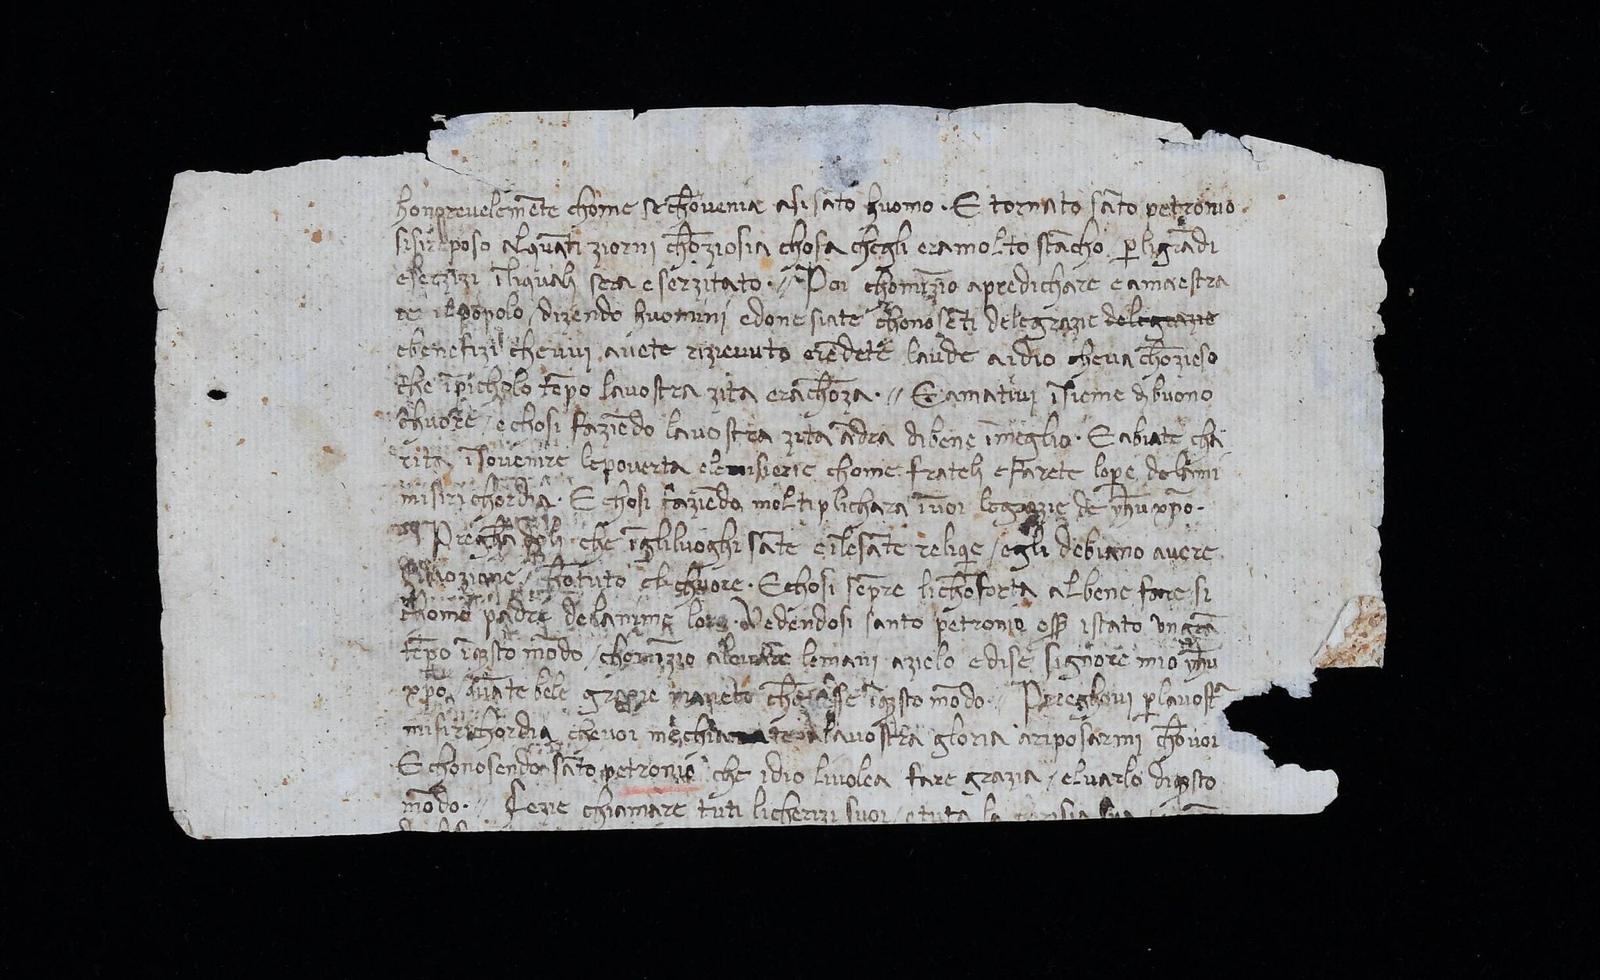 honorevelemēte chome se chōvenia asi sāto huomo · E tornato sāto petronio
si si reposo alquāti ziorni chōziosia chosa chegli era molto stācho p̱ li grādi
eserzizi ī li quali sera eserzitato · // Poi chomīzio a predichare e amaestra
re il popolo / dizendo huomini e done siate chonosēti dele grazie
e benefizi che vui avete rizievuto e rēdete laude a idio che va chōzieso
che ī picholo tēpo la vostra zita era chōza · // E amativi īsieme di buono
chuore / e chosi faziēdo la vostra zita ādra di bene ī meglio · E abiate cha
rita ī sovenire le poverta e le miserie chome frateli e farete lope de la
misirichordia · E chosi faziēdo moltiplichara ī voi le grazie de yhū xp̄o ·
che ī gli luoghi sāte e i le sāte reliq̱e / egli debiano avere
chō tuto el chuore · E chosi sēpre li chōforta al bene fare si
chome padre de lanime loro · Vedēdosi santo petronio ess̄ istato un grā
tēpo ī q̱sto mōdo / chomīzio a levare le mani a zielo e dise signore mio yhū
xp̄o quāte bele grazie ī q̱sto mōdo · // Preeghovi p̱ la vostr̄a
misirichordia che voi a la vostra gloria a riposarmi chō voi
E chonosendo sāto petronio che idio li volea fare grazia / e lvarlo di q̱sto
mōdo · // Feze chiamare tuti li cherizi suoi / e tuta la